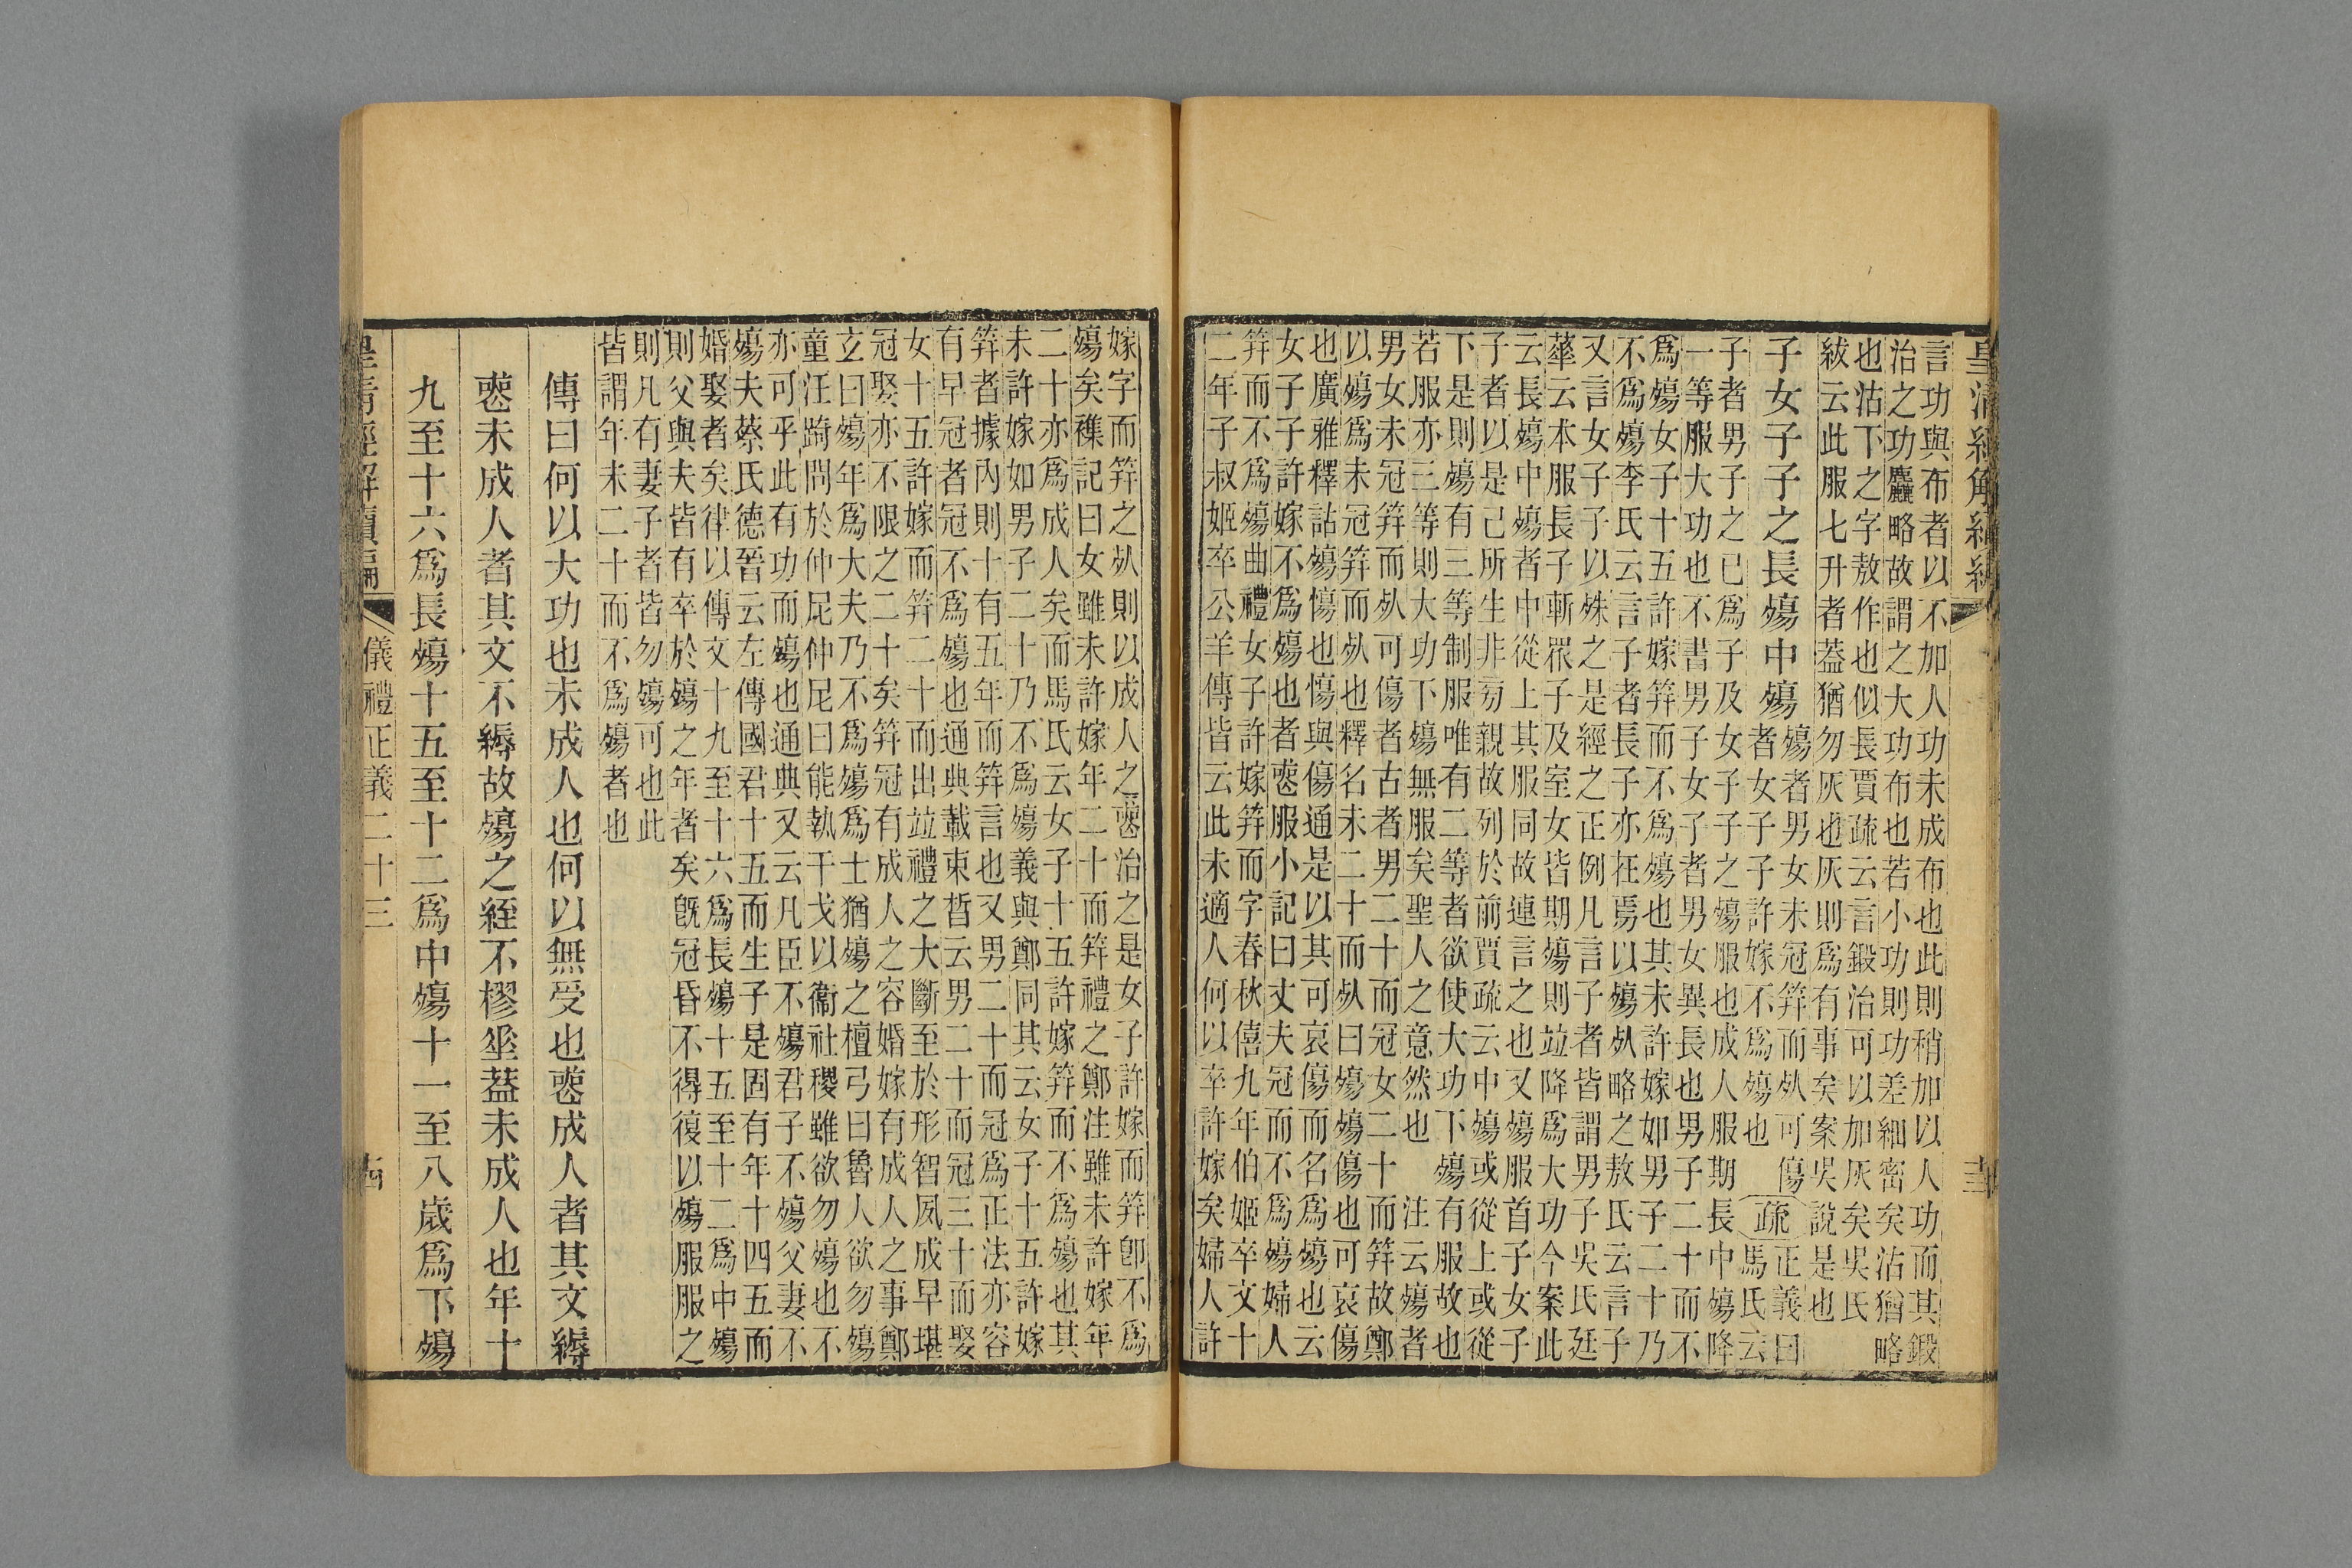 皇清經解續編
言功與布者以不加人功未成布也此則稍加以人功而其鍛
治之功麤略故謂之大功布也若小功則功差細密矣沽猶略
也沽下之字敖作也似長賈疏云言鍛治可以加灰矣吳氏
紱云此服七升者葢猶勿灰也灰則爲有事矣案吳說是也
子女子子之長殤中殤
殤者男女未冠笄而𣦸可傷
者女子子許嫁不爲殤也
疏
正義曰
馬氏云
子者男子之已爲子及女子子之殤服也成人服期長中殤降
一等服大功也不書男子女子者男女異長也男子二十而不
爲殤女子十五許嫁笄而不爲殤也其未許嫁如男子二十乃
不爲殤李氏云言子者長子亦在焉以殤𣦸略之敖氏云言子
又言女子子以殊之是經之正例凡言子者皆謂男子吳氏廷
華云本服長子斬眾子及室女皆期殤則竝降爲大功今案此
云長殤中殤者中從上其服同故連言之也又殤服首子女子
子者以是己所生非旁親故列於前賈疏云中殤或從上或從
下是則殤有三等制服唯有二等者欲使大功下殤有服故也
若服亦三等則大功下殤無服矣聖人之意然也 注云殤者
男女未冠笄而𣦸可傷者古者男二十而冠女二十而笄故鄭
以殤爲未冠笄而𣦸也釋名未二十而𣦸曰殤殤傷也可哀傷
也廣雅釋詁殤慯也慯與傷通是以其可哀傷而名爲殤也云
女子子許嫁不爲殤也者喪服小記曰丈夫冠而不爲殤婦人
笄而不爲殤曲禮女子許嫁笄而字春秋僖九年伯姬卒文十
二年子叔姬卒公羊傳皆云此未適人何以卒許嫁矣婦人許
嫁字而笄之𣦸則以成人之喪治之是女子許嫁而笄卽不爲
殤矣襍記曰女雖未許嫁年二十而笄禮之鄭注雖未許嫁年
二十亦爲成人矣而馬氏云女子十五許嫁笄而不爲殤也其
未許嫁如男子二十乃不爲殤義與鄭同其云女子十五許嫁
笄者據內則十有五年而笄言也又男二十而冠爲正法亦容
有早冠者冠不爲殤也通典載束晳云男二十而冠三十而娶
女十五許嫁而笄二十而出竝禮之大斷至於形智夙成早堪
冠娶亦不限之二十矣笄冠有成人之容婚嫁有成人之事鄭
玄曰殤年爲大夫乃不爲殤爲士猶殤之檀弓曰魯人欲勿殤
童汪踦問於仲尼仲尼曰能執干戈以衞社稷雖欲勿殤也不
亦可乎此有功而殤也通典又云凡臣不殤君子不殤父妻不
殤夫蔡氏德晉云左傳國君十五而生子是固有年十四五而
婚娶者矣律以傳文十九至十六爲長殤十五至十二爲中殤
則父與夫皆有卒於殤之年者矣旣冠昏不得復以殤服服之
則凡有妻子者皆勿殤可也此
皆謂年未二十而不爲殤者也
傳曰何以大功也未成人也何以無受也喪成人者其文縟
喪未成人者其文不縟故殤之絰不樛垂葢未成人也年十
九至十六爲長殤十五至十二爲中殤十一至八歲爲下殤
皇清經解續編 儀禮正義二十三